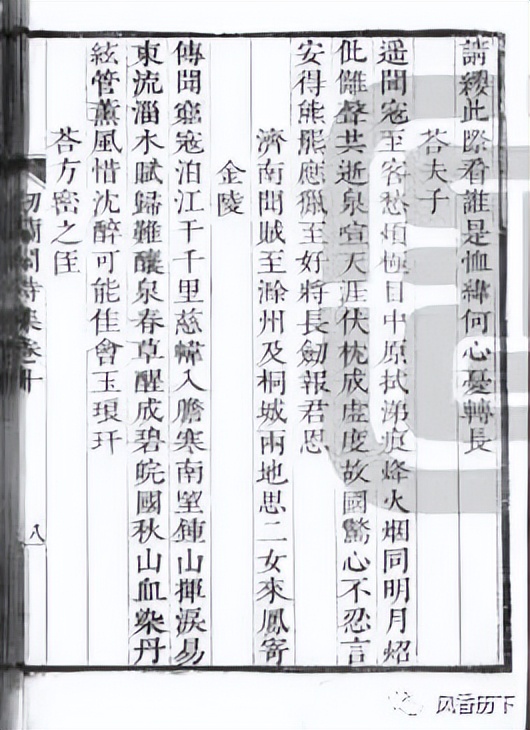 請纓此際看誰是恤緯何心憂轉長
荅夫子
遥聞寇至客愁煩極目中原拭涕痕烽火烟同明月炤
仳儺聲共逝泉喧天涯伏枕成虛度故國驚心不忍言
安得熊羆應猟至好將長劒報君恩
濟南聞賊至滁州及桐城兩地思二女來鳳寄
金陵
傳聞窮寇泊江干千里慈幃入膽寒南望鍾山揮淚易
東流淄水賦歸難釀泉春草醒成碧皖國秋山血染丹
絃管薰風惜沈醉可能隹會玉琅玕
荅方密之侄
紉蘭閣詩集卷十
八
风音历下